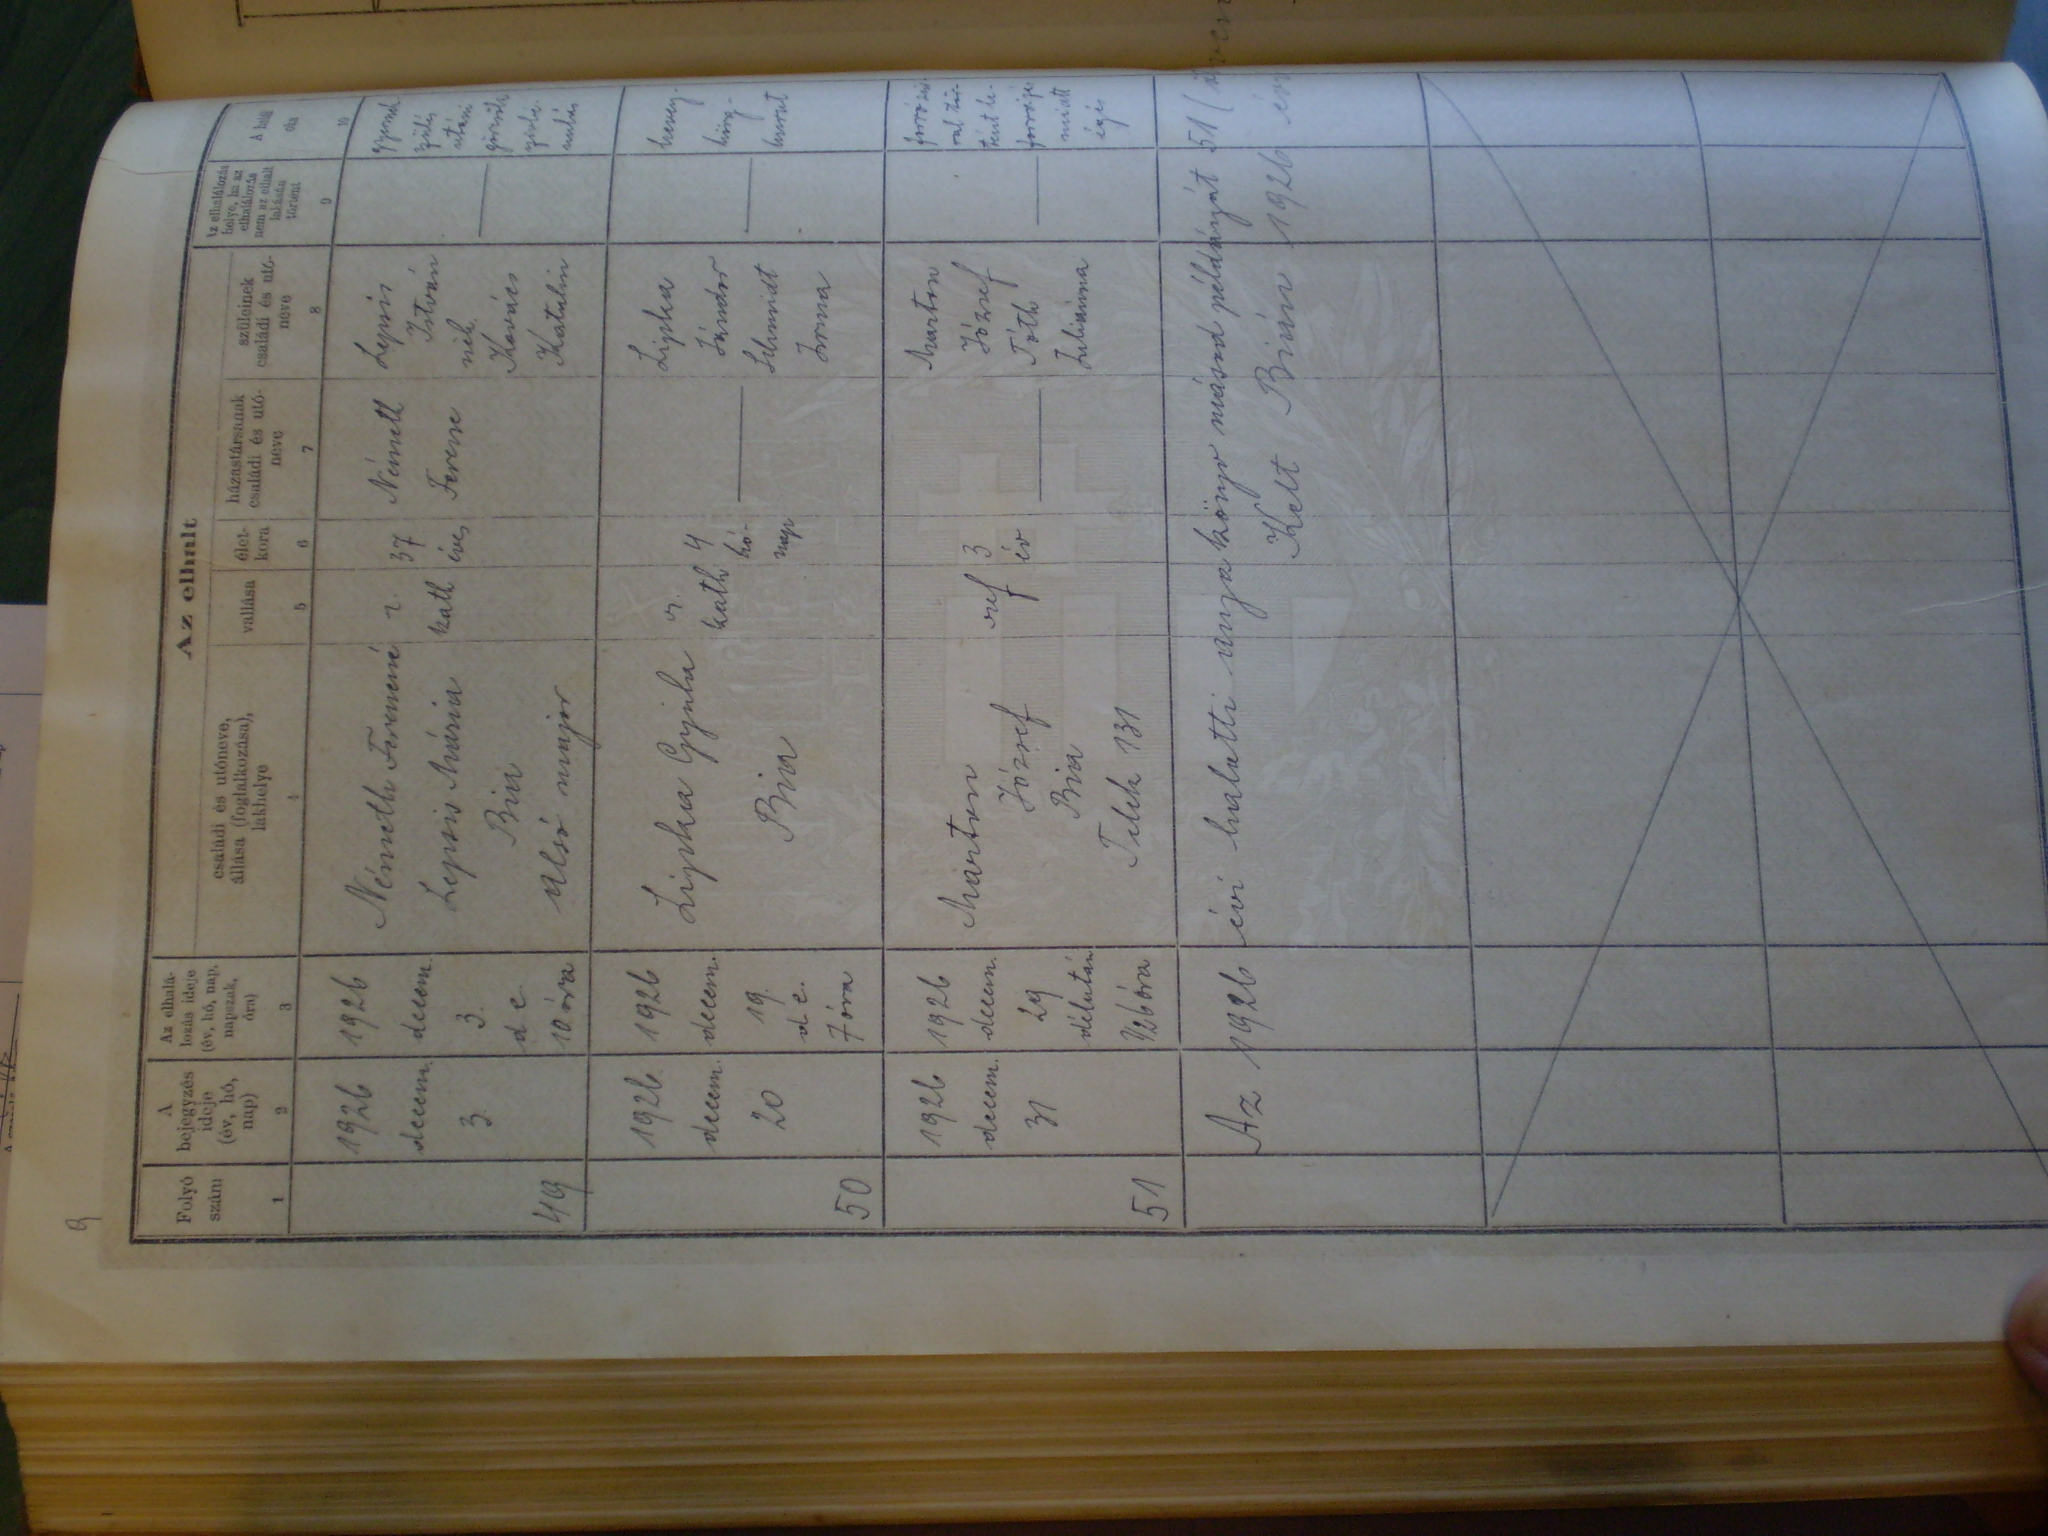 9
Az elhalt
Folyó
szám
1
A
bejegyzés
ideje
(év, hó,
nap)
2
Az elhalá-
lozás ideje
(év, hó, nap,
napszak,
óra)
3
családi és utóneve,
állása (foglalkozása),
lakhelye
4
vallása
5
élet-
kora
6
házastársának
családi és utó-
neve
7
szüleinek
családi és utó-
neve
8
Az elhalálozás
helye, ha az
elhalálozás
nem az elhalt
lakásán
történt
9
A halál
oka
10
49
1926
decem.
3.
1926
decem.
3.
d e
10 óra
Németh Ferencné
Lepsis Mária
Bia
alsó major
r.
kath
37
éves
Németh
Ferenc
Lepsis
István
néh.
Kovács
Katalin
gyermek
szülés
utáni
görcsök
50
1926
decem.
20
1926
decem.
19.
d e.
7 óra
Lipka Gyula
Bia
r.
kath
4
hó-
nap
Lipka
Sándor
Schmidt
Irma
heveny.
hörg-
hurut
51
1926
decem.
31
1926
decem.
29
délután
1/2 6 óra
Márton
József
Bia
Telek 131
ref
3
év
Marton
József
Tóth
Juliánna
forró
miatt
égés
Az 1926 évi halotti anyakönyv másod példányát 51 (
Kelt Bián 1926 év